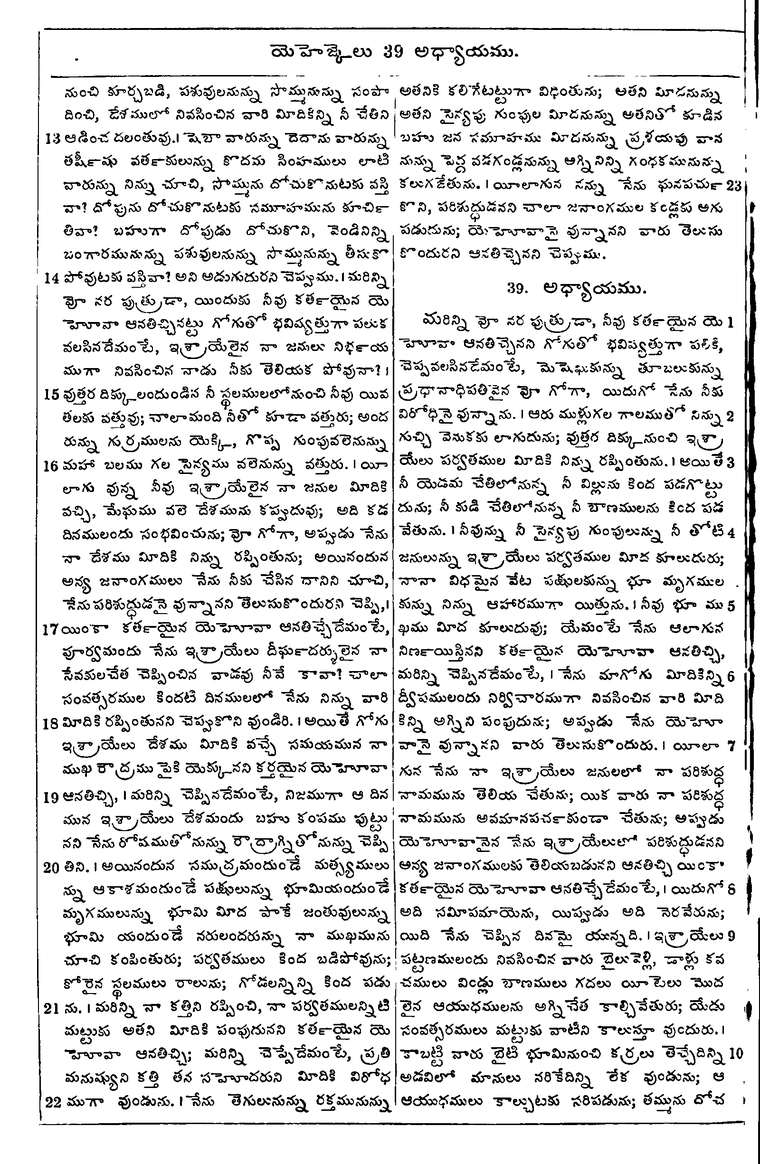 యెహెజ్కేలు 39 అధ్యాయము.
నుంచి కూర్చబడి, పశువులనున్ను సొమ్మునున్ను సంపా
దించి, దేశములో నివసించిన వారి మీదికిన్ని నీ చేతిని
13 ఆడించ దలంతువు. । షెబా వారున్ను దెదాను వారున్ను
తర్షీషు వర్తకులున్ను కొదమ సింహములు లాటి
వారున్ను నిన్ను చూచి, సొమ్మును దోచుకొనుటకు వస్తి
వా? దోపును దోచుకొనుటకు సమూహమును కూర్చి
తివా? బహుగా దోపుడు దోచుకొని, వెండినిన్ని
బంగారమునున్ను పశువులనున్ను సొమ్మునున్ను తీసుకొ
14 పోవుటకు వస్తివా? అని అడుగుదురని చెప్పుము. । మరిన్ని
వోా నర పుత్రుడా, యిందుకు నీవు కర్తయైన యె
హోవా ఆనతిచ్చినట్టు గోగుతో భవిష్యత్తుగా పలుక
వలసినదేమంటే, ఇశ్రాయేలైన నా జనులు నిర్భయ
ముగా నివసించిన నాడు నీకు తెలియక పోవునా? ।
15 వుత్తర దిక్కులందుండిన నీ స్థలములలోనుంచి నీవు యివ
తలకు వత్తువు; చాలామంది నీతో కూడా వత్తురు; అంద
రున్ను గుర్రములను యెక్కి, గొప్ప గుంపువలెనున్ను
16 మహా బలము గల సైన్యము వలెనున్ను వత్తురు. । యీ
లాగు వున్న నీవు ఇశ్రాయేలైన నా జనుల మీదికి
వచ్చి, మేఘము వలె దేశమును కప్పుదువు; అది కడ
దినములందు సంభవించును; వోా గోగా, అప్పుడు నేను
నా దేశము మీదికి నిన్ను రప్పింతును; అయినందున
అన్య జనాంగములు నేను నీకు చేసిన దానిని చూచి,
నేను పరిశుద్ధుడనై వున్నానని తెలుసుకొందురని చెప్పి, ।
17 యింకా కర్తయైన యెహోవా ఆనతిచ్చేదేమంటే,
పూర్వమందు నేను ఇశ్రాయేలు దీర్ఘదర్శులైన నా
సేవకులచేత చెప్పించిన వాడవు నీవే కావా? చాలా
సంవత్సరముల కిందటి దినములలో నేను నిన్ను వారి
18 మీదికి రప్పింతునని చెప్పుకొని వుండిరి. । అయితే గోగు
ఇశ్రాయేలు దేశము మీదికి వచ్చే సమయమున నా
ముఖ రౌద్రము పైకి యెక్కునని కర్తయైన యెహోవా
19 ఆనతిచ్చి, । మరిన్ని చెప్పినదేమంటే, నిజముగా ఆ దిన
మున ఇశ్రాయేలు దేశమందు బహు కంపము పుట్టు
నని నేను రోషముతోనున్ను రౌద్రాగ్నితోనున్ను చెప్పి
20 తిని. । అయినందున సముద్రమందుండే మత్స్యములు
న్ను ఆకాశమందుండే పక్షులున్ను భూమియందుండే
మృగములున్ను భూమి మీద పాకే జంతువులున్ను
భూమి యందుండే నరులందరున్ను నా ముఖమును
చూచి కంపింతురు; పర్వతములు కింద బడిపోవును;
కోరైన స్థలములు రాలును; గోడలన్నిన్ని కింద పడు
21 ను. । మరిన్ని నా కత్తిని రప్పించి, నా పర్వతములన్నిటి
మట్టుకు అతని మీదికి పంపుదునని కర్తయైన యె
హోవా ఆనతిచ్చి; మరిన్ని చెప్పేదేమంటే, ప్రతి
మనుష్యుని కత్తి తన సహోదరుని మీదికి విరోధ
22 ముగా వుండును. । నేను తెగులునున్ను రక్తమునున్ను
అతనికి కలిగేటట్టుగా విధింతును; అతని మీదనున్ను
అతని సైన్యపు గుంపుల మీదనున్ను అతనితో కూడిన
బహు జన సమూహము మీదనున్ను ప్రళయపు వాన
నున్ను పెద్ద వడగండ్లనున్ను అగ్నినిన్ని గంధకమునున్ను
కలుగజేతును. । యీలాగున నన్ను నేను ఘనపర్చు 23
కొని, పరిశుద్ధుడనని చాలా జనాంగముల కండ్లకు అగు
పడుదును; యెహోవానై వున్నానని వారు తెలుసు
కొందురని ఆనతిచ్చెనని చెప్పుము.
39. అధ్యాయము.
మరిన్ని వోా నర పుత్రుడా, నీవు కర్తయైన యె 1
హోవా ఆనతిచ్చెనని గోగుతో భవిష్యత్తుగా పల్కి,
చెప్పవలసినదేమంటే, మెషెఖుకున్ను తూబలుకున్ను
ప్రధానాధిపతివైన వోా గోగా, యిదుగో నేను నీకు
విరోధినై వున్నాను. । ఆరు ముళ్లుగల గాలముతో నిన్ను 2
గుచ్చి వెనుకకు లాగుదును; వుత్తర దిక్కునుంచి ఇశ్రా
యేలు పర్వతముల మీదికి నిన్ను రప్పింతును. । అయితే 3
నీ యెడమ చేతిలోనున్న నీ విల్లును కింద పడగొట్టు
దును; నీ కుడి చేతిలోనున్న నీ బాణములను కింద పడ
వేతును. । నీవున్ను నీ సైన్యపు గుంపులున్ను నీ తోటి 4
జనులున్ను ఇశ్రాయేలు పర్వతముల మీద కూలుదురు;
నానా విధమైన వేట పక్షులకున్ను భూ మృగముల
కున్ను నిన్ను ఆహారముగా యిత్తును. । నీవు భూ ము 5
ఖము మీద కూలుదువు; యేమంటే నేను ఆలాగున
నిర్ణయిస్తినని కర్తయైన యెహోవా ఆనతిచ్చి,
మరిన్ని చెప్పినదేమంటే, । నేను మాగోగు మీదికిన్ని 6
ద్వీపములందు నిర్విచారముగా నివసించిన వారి మీది
కిన్ని అగ్నిని పంపుదును; అప్పుడు నేను యెహో
వానై వున్నానని వారు తెలుసుకొందురు. । యీలా 7
గున నేను నా ఇశ్రాయేలు జనులలో నా పరిశుద్ధ
నామమును తెలియ చేతును; యిక వారు నా పరిశుద్ధ
నామమును అవమానపర్చకుండా చేతును; అప్పుడు
యెహోవానైన నేను ఇశ్రాయేలులో పరిశుద్ధుడనని
అన్య జనాంగములకు తెలియబడునని ఆనతిచ్చి యింకా
కర్తయైన యెహోవా ఆనతిచ్చేదేమంటే, । యిదుగో 8
అది సమీపమాయెను, యిప్పుడు అది నెరవేరును;
యిది నేను చెప్పిన దినమై యున్నది. । ఇశ్రాయేలు 9
పట్టణములందు నివసించిన వారు బైలువెళ్లి, డాళ్లు కవ
చములు విండ్లు బాణములు గదలు యీటెలు మొద
లైన ఆయుధములను అగ్నిచేత కాల్చివేతురు; యేడు
సంవత్సరములు మట్టుకు వాటిని కాలుస్తూ వుందురు. ।
కాబట్టి వారు బైటి భూమినుంచి కర్రలు తెచ్చేదిన్ని 10
అడవిలో మానులు నరికేదిన్ని లేక వుండును; ఆ
ఆయుధములు కాల్చుటకు సరిపడును; తమ్మును దోచ